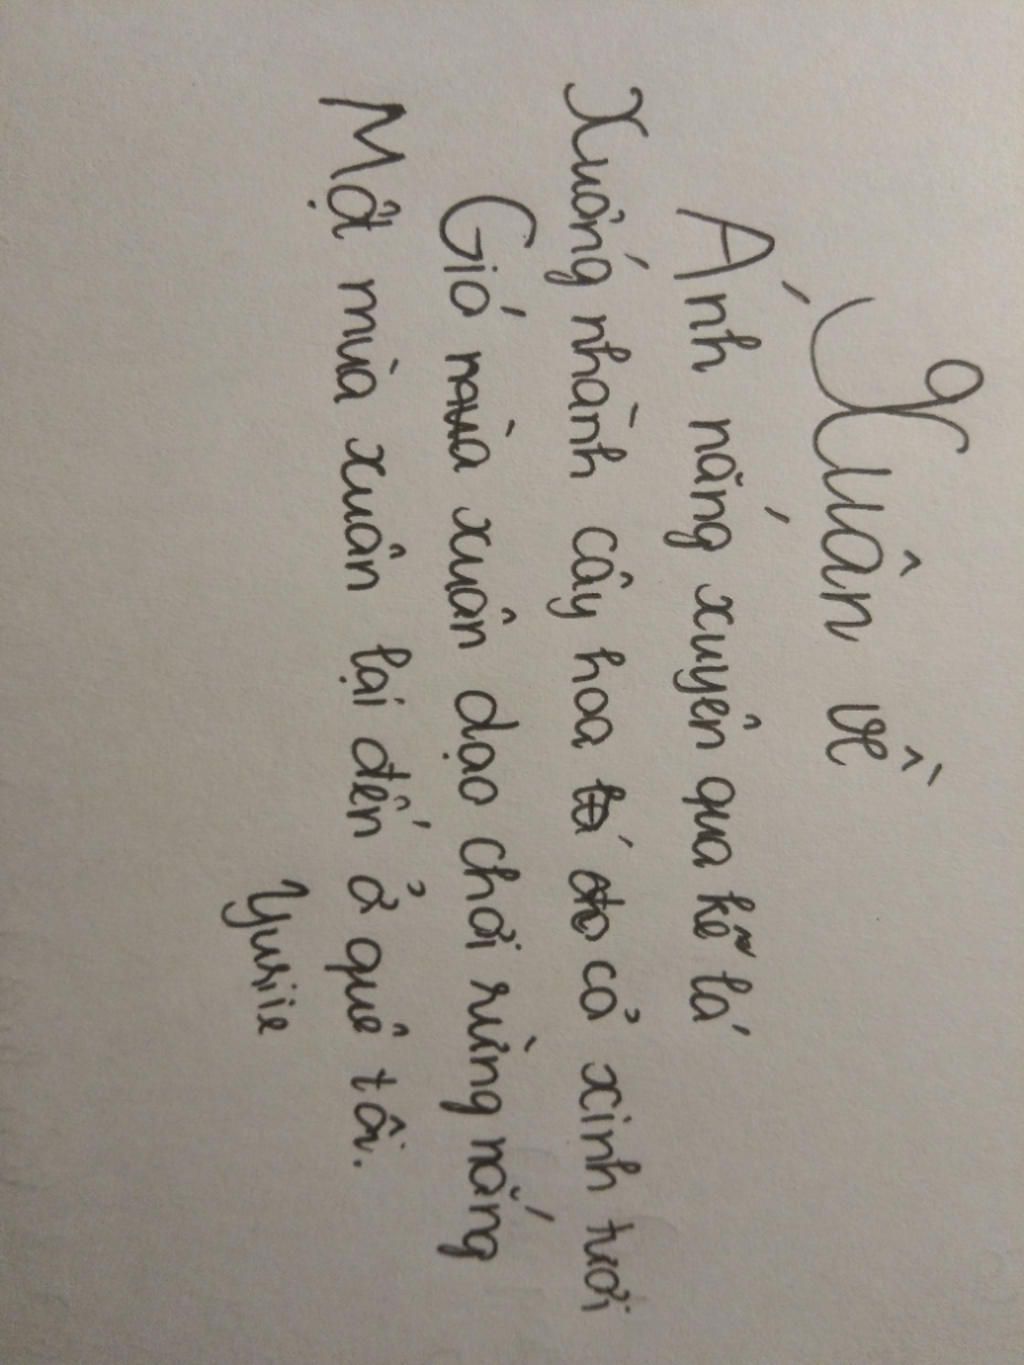 Xuân về
Ánh nắng xuyên qua kẽ lá
Xuống nhành cây hoa lá cỏ xinh tươi
Gió mùa xuân dạo chơi rừng nắng
Một mùa xuân lại đến ở quê tôi.
Yuriie